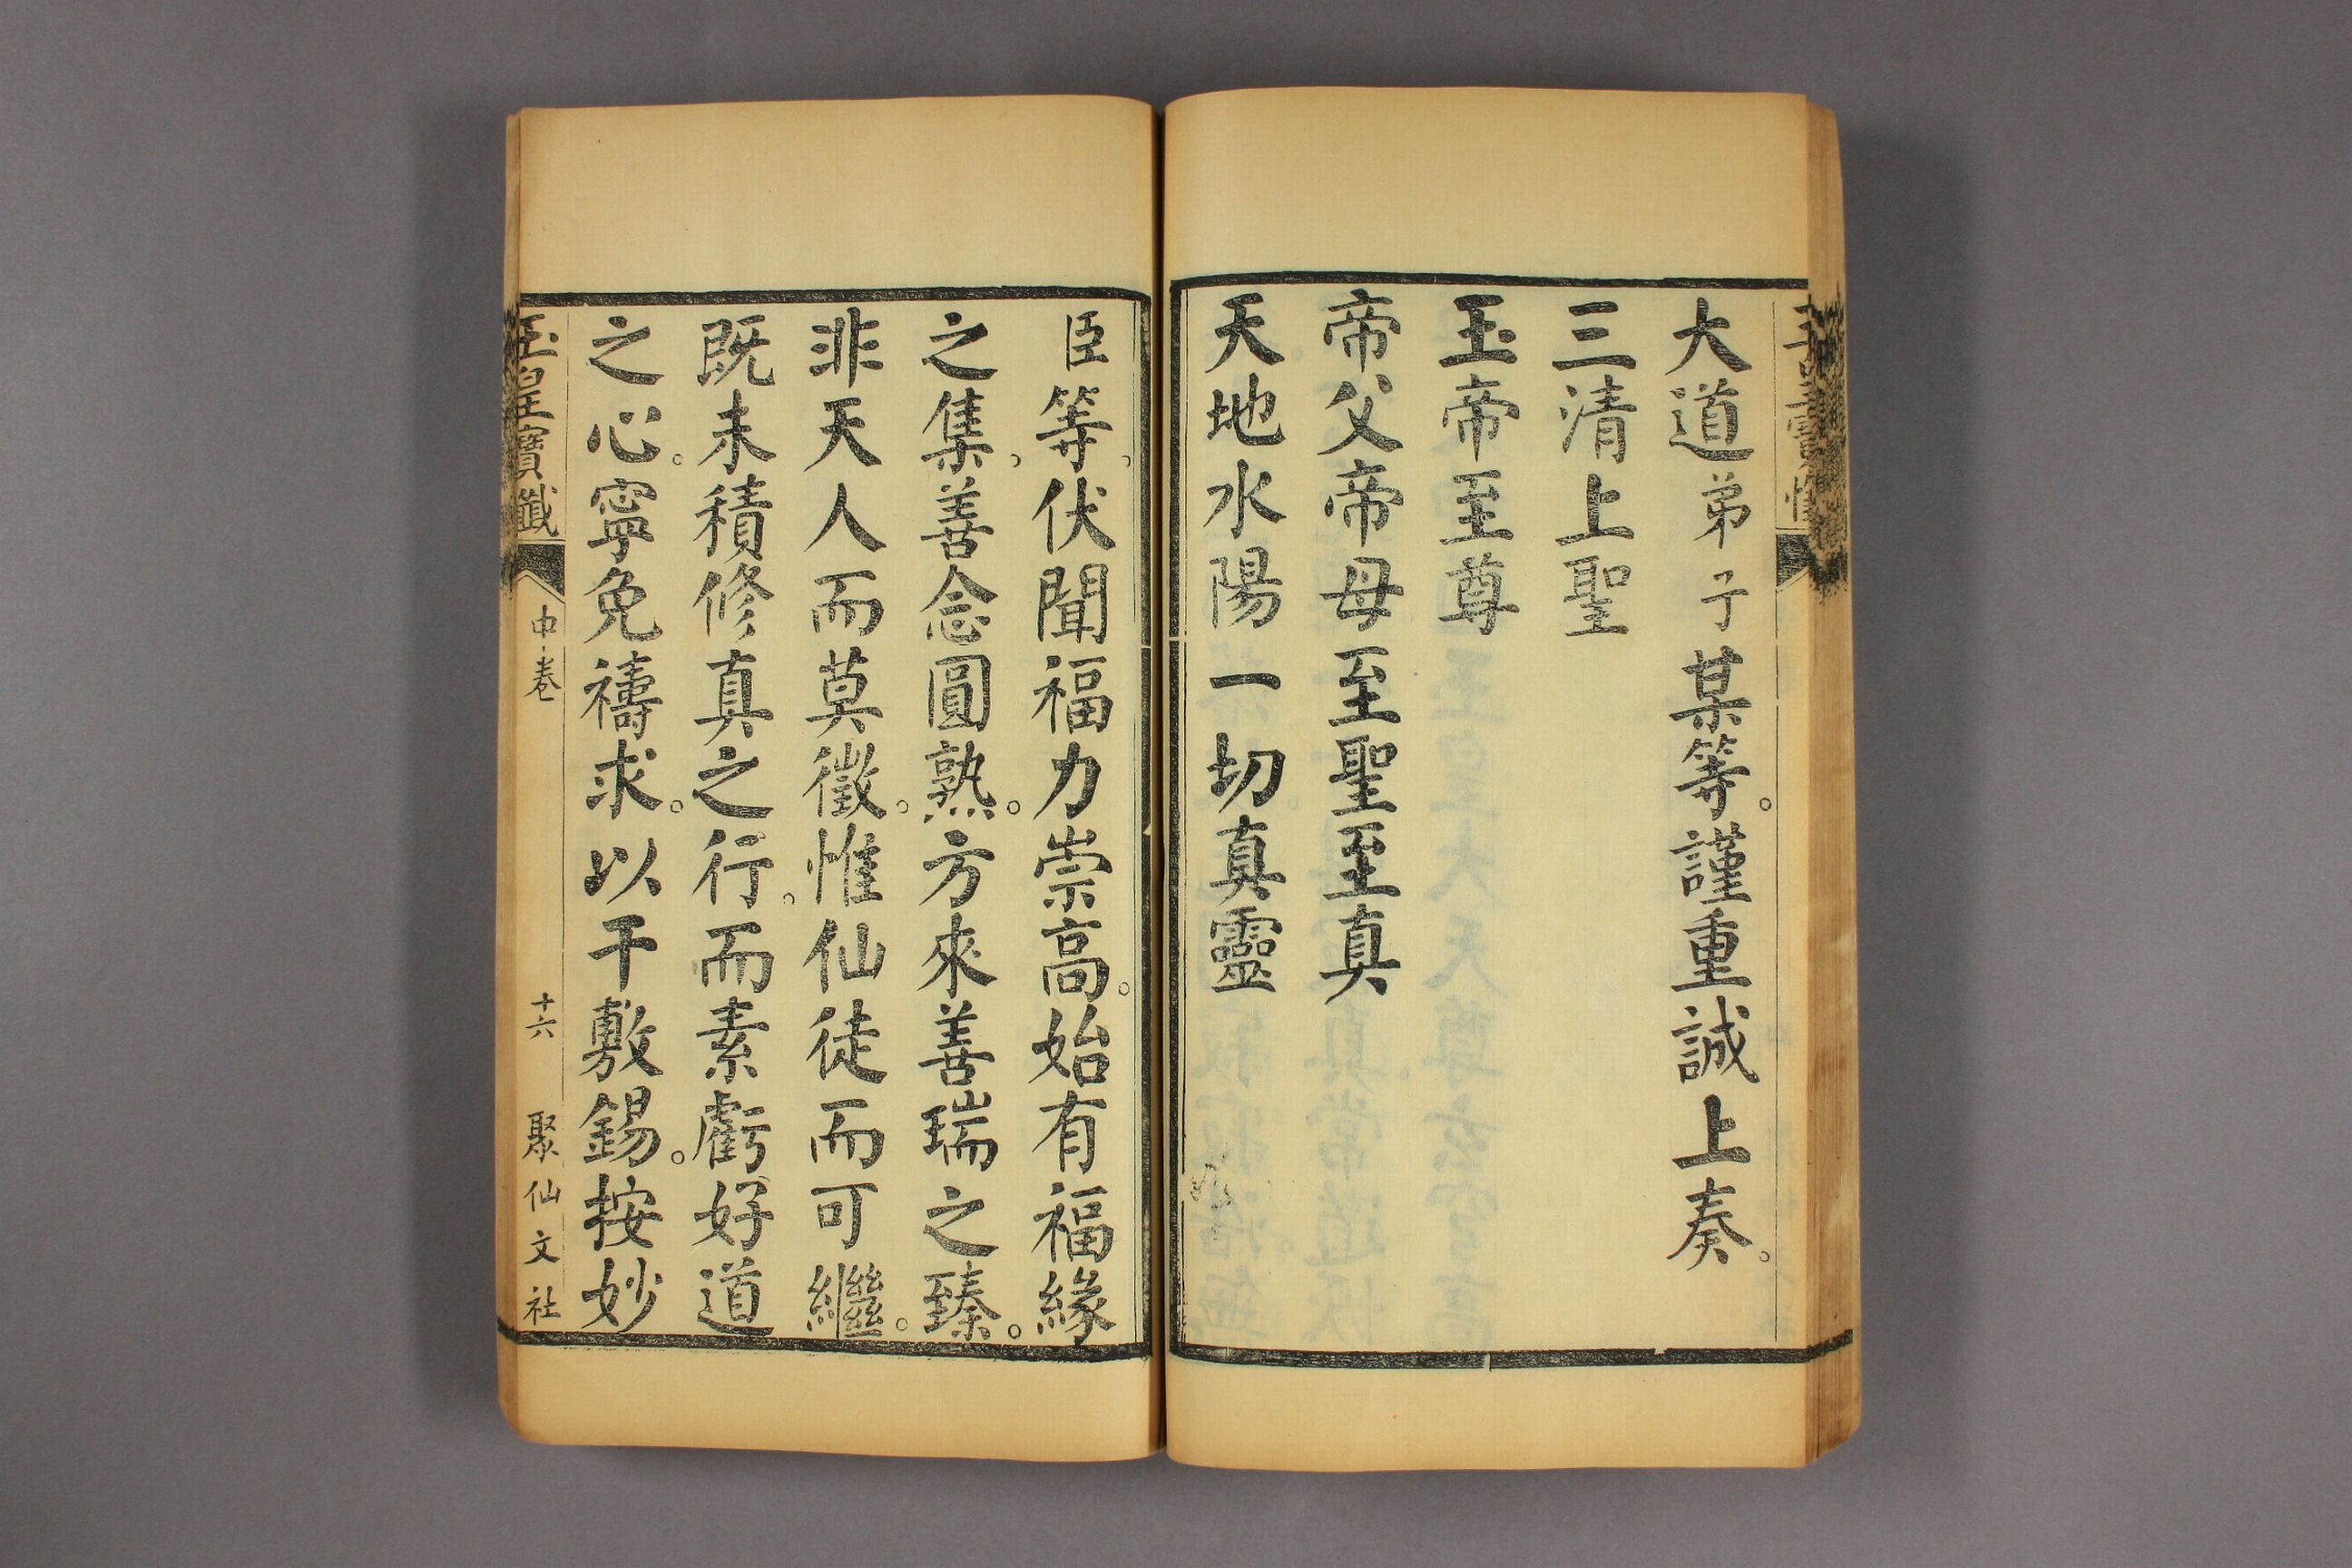 大道弟子某等。謹重誠上奏。
三清上聖
玉帝至尊
帝父帝母至聖至真
天地水陽一切真靈
臣等、伏聞福力崇高。始有福緣
之集、善念圓熟。方來善瑞之臻。
非天人而莫徵。惟仙徒而可繼。
既未積修真之行。而素虧好道
之心。寧免禱求。以干敷錫。按妙
玉皇寶懺 中卷 十六 聚仙文社